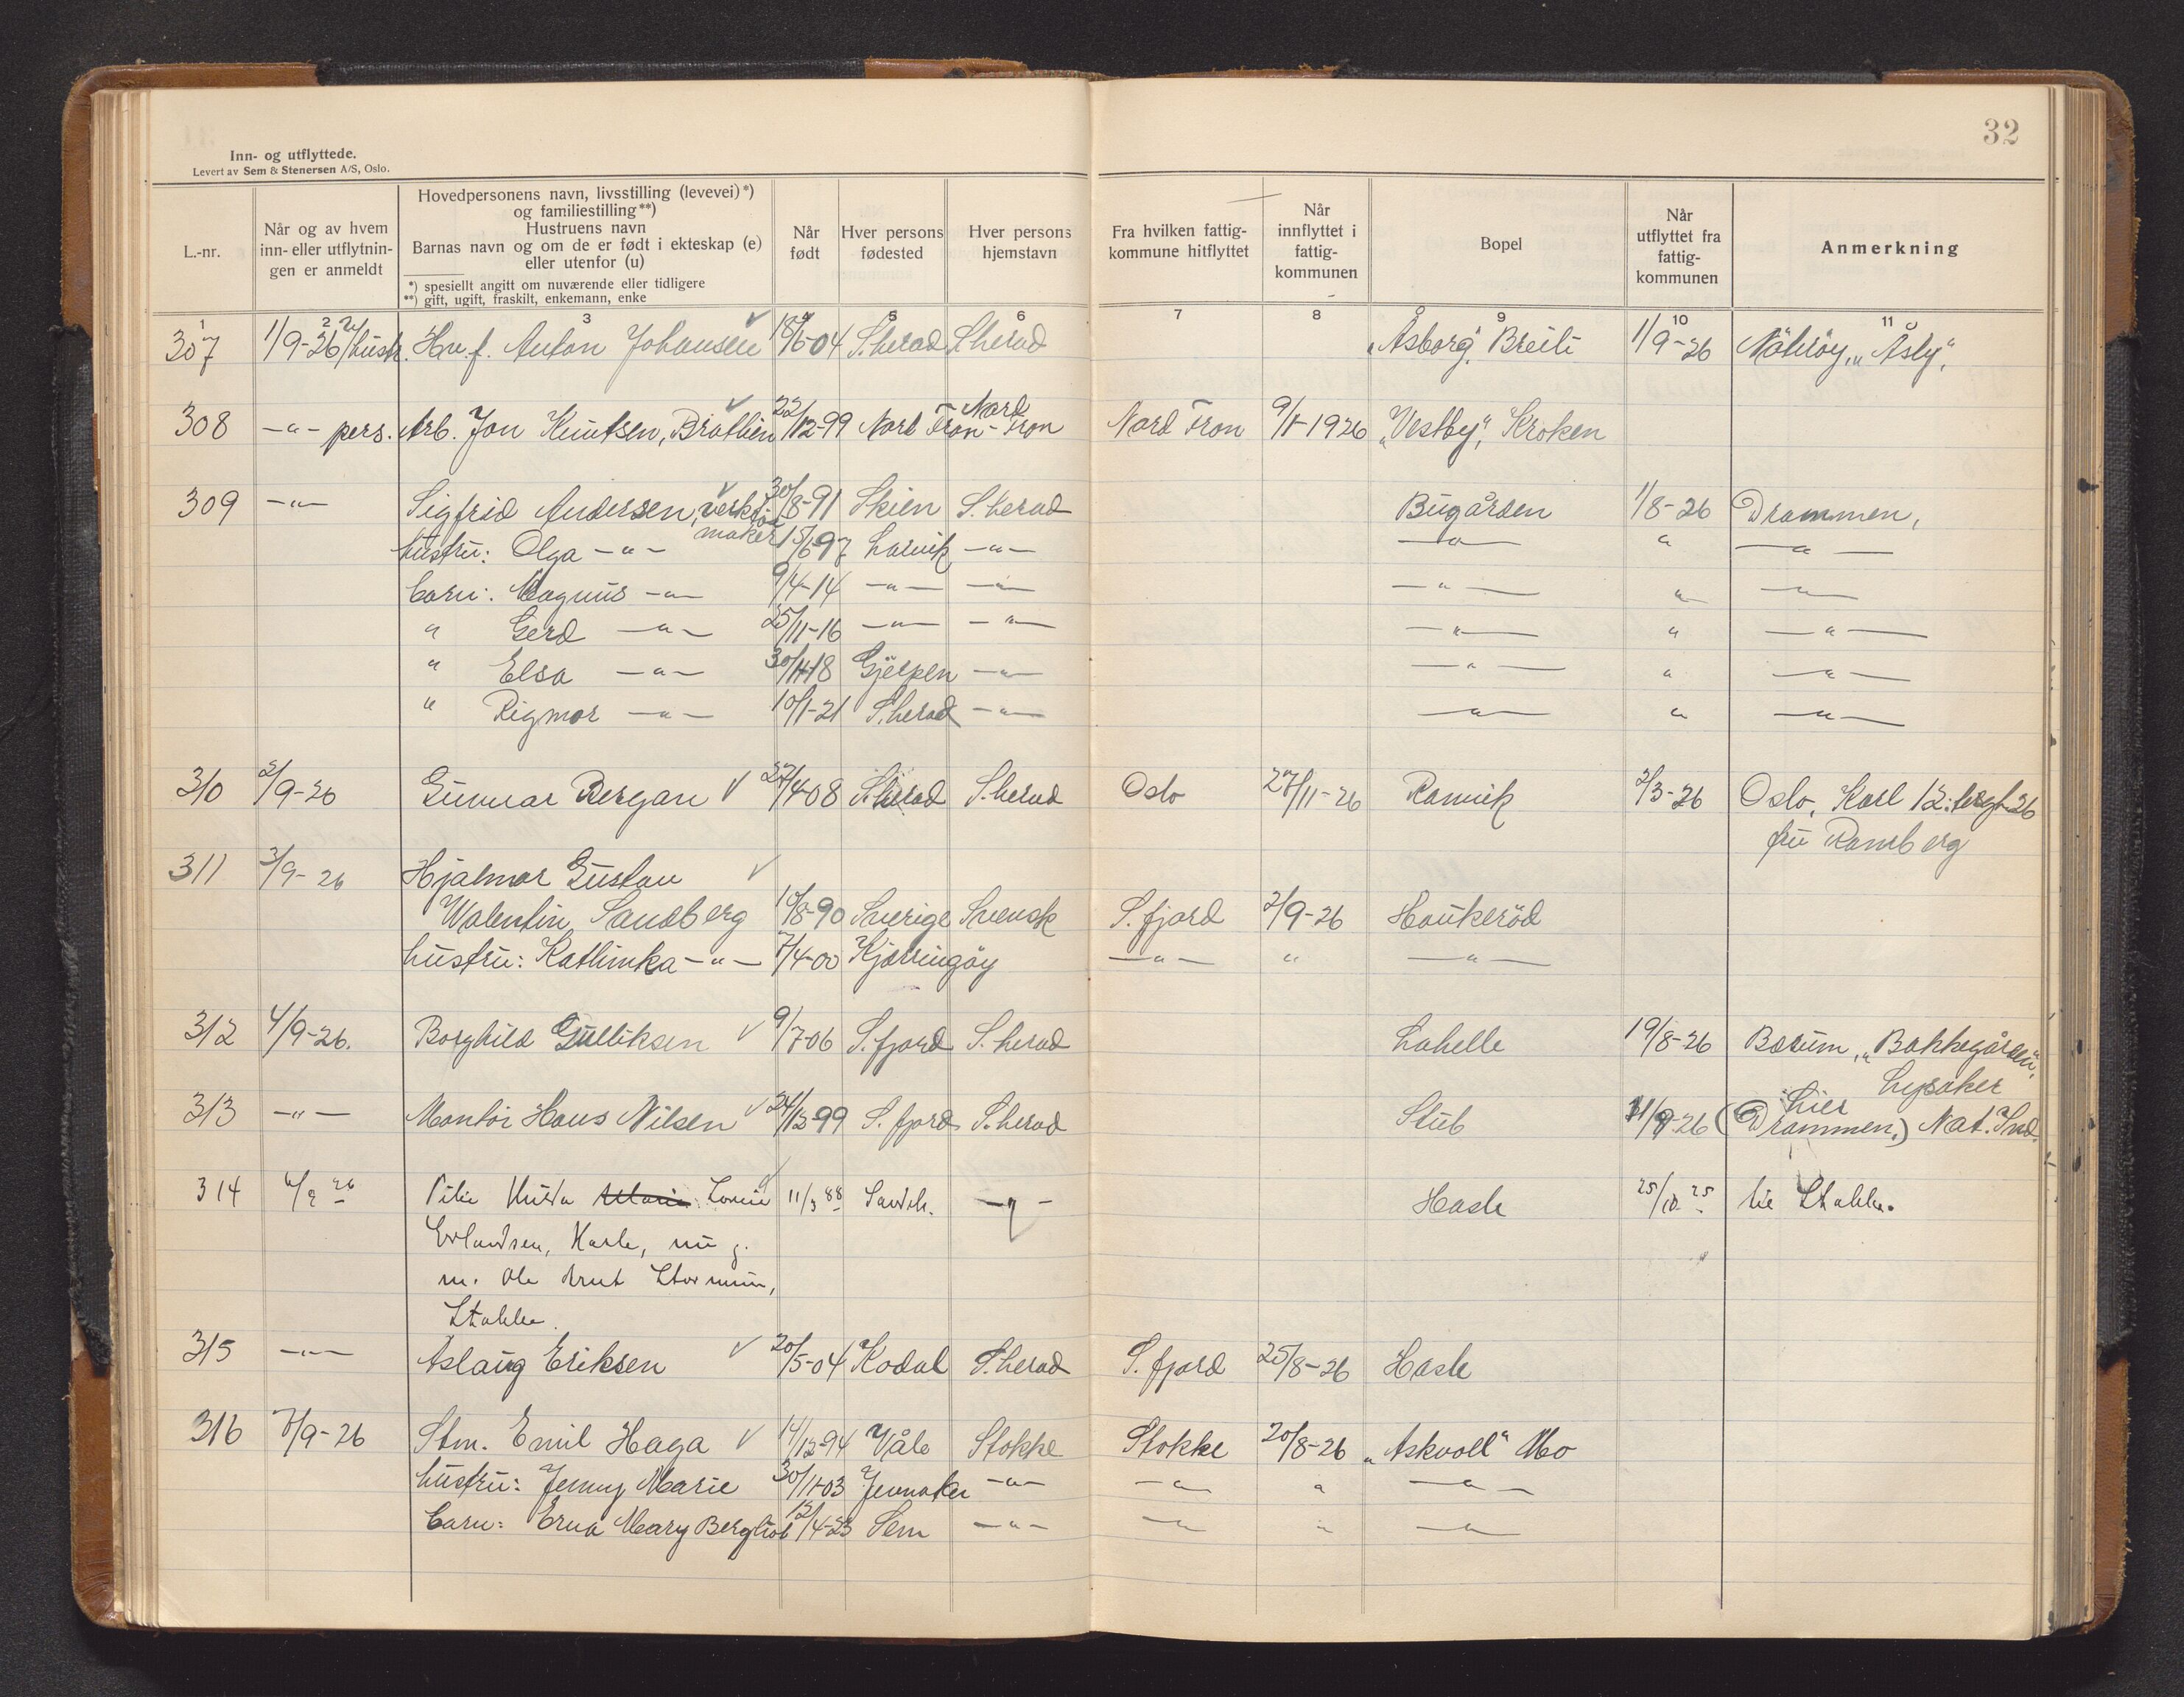 32
Inn- og utflyttede.
Levert av Sem & Stenersen A/S, Oslo.
L.-nr.
Når og av hvem inn- eller utflytnin- gen er anmeldt
Hovedpersonens navn, livsstilling (levevei)*)
og familiestilling**)
Hustruens navn
Barnas navn og om de er født i ekteskap (e)
eller utenfor (u)
*) spesielt angitt om nuværende eller tidligere
**) gift, ugift, fraskilt, enkemann, enke
Når født
Hver persons fødested
Hver persons hjemstavn
Fra hvilken fattig- kommune hitflyttet
Når innflyttet i fattig- kommunen
Bopel
Når utflyttet fra fattig- kommunen
Anmerkning
1 2 3 5 6 7 8 9 10 11
307 1/9-26 v/hustr. Hv.f. Anton Johansen 18/6-04 S.herad S.herad „Åsborg“, Breili 1/9-26 Nötröy, „Åsly“,
308 -"- pers. Arb. Jon Knutsen, Bråthen 22/12-99 Nord Fron Nord-Fron Nord Fron 9/1-1926 „Vestby“, Kroken
309 -"- Sigfrid Andersen, verktöi 30/8-91 Skien S.herad Bugården 1/8-26 Drammen,
maker
hustru: Olga -"- 15/6-97 Larvik -"- -"- " -"-
barn: Magnus -"- 9/4-14 -"- -"- -"- " -"-
" Gerd -"- 25/11-16 -"- -"- -"- " -"-
" Elsa -"- 30/11-18 Gjerpen -"- -"- " -"-
" Rigmor -"- 10/1-21 S.herad -"- -"- " -"-
310 2/9-26 Gunnar Bergan 27/4-08 S.herad S.herad Oslo 27/11-26 Ranvik 2/3-26 Oslo, Karl 12. tergt. 26
fru Ramberg
311 3/9-26 Hjalmar Gustav
Valentin Sandberg 10/8-90 Sverige Svensk S.fjord 2/9-26 Haukeröd
hustru: Kathinka -"- 7/4-00 Kjerringöy -"- " -"-
312 4/9-26. Borghild Gulliksen 9/7-06 S.fjord S.herad Lahelle 19/8-26 Bærum, „Bakkegården“,
Lysaker
313 -"- Montör Hans Nilsen 24/12-99 S.fjord S.herad Stub 31/8-26 (Drammen.) Nat. Ind.
Lier
314 6/9 26 Hulda Marie Lovise 11/3 88 Sandeh. -"- Hasle 25/10 25 til Stokke.
Erlandsen, Hasle, nu g.
m. Ole Knut Stormoen,
Stokke.
315 -"- Aslaug Eriksen 20/5-04 Kodal S.herad S.fjord 25/8-26 Hasle
316 7/9-26 Stm. Emil Haga 14/12-94 Våle Stokke Stokke 20/8-26 „Askvoll“ Mo
hustru: Jenny Marie 30/11-03 Jevnaker -"- -"- " -"-
barn: Erna Mary Bergliot 12/4-23 Sem -"- -"- " -"-